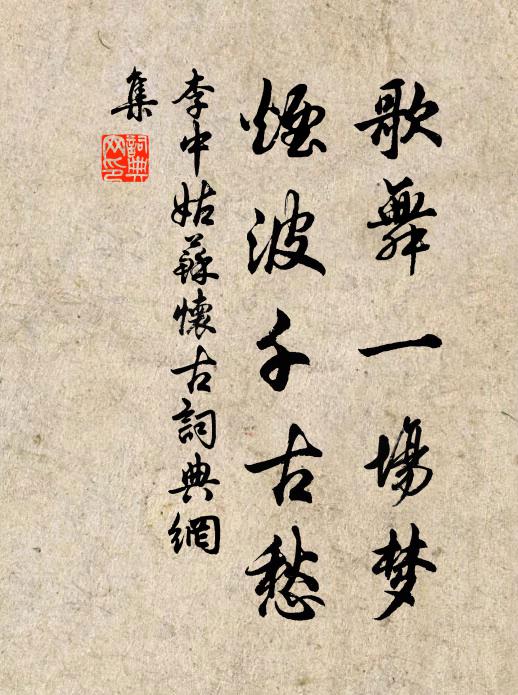 歌舞一場梦
煙波千古愁
李中姑蘇懷古詞典網
集
詞典
网印